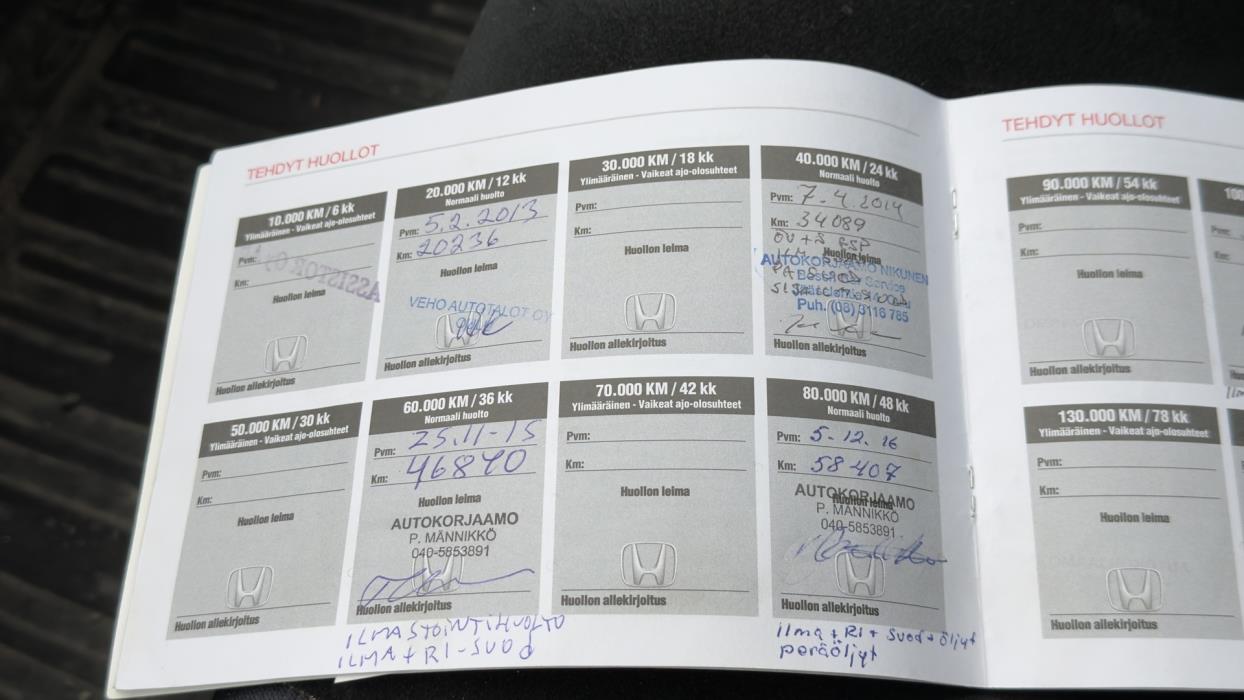 TEHDYT HUOLLOT
10.000 KM / 6 kk
Ylimääräinen - Vaikeat ajo-olosuhteet
Pvm:
Km:
ASSISTOR OY
Huollon leima
Huollon allekirjoitus
20.000 KM / 12 kk
Normaali huolto
Pvm: 5.2.2013
Km: 20236
Huollon leima
VEHO AUTOTALOT OY
Huollon allekirjoitus
30.000 KM / 18 kk
Ylimääräinen - Vaikeat ajo-olosuhteet
Pvm:
Km:
Huollon leima
Huollon allekirjoitus
40.000 KM / 24 kk
Normaali huolto
Pvm: 7.4.2014
Km: 34089
Huollon leima
AUTOKORJAAMO NIKUNEN
Bosch Car Service
Puh. (08) 3116 785
Huollon allekirjoitus
50.000 KM / 30 kk
Ylimääräinen - Vaikeat ajo-olosuhteet
Pvm:
Km:
Huollon leima
Huollon allekirjoitus
60.000 KM / 36 kk
Normaali huolto
Pvm: 25.11-15
Km: 46840
Huollon leima
AUTOKORJAAMO
P. MÄNNIKKÖ
040-5853891
Huollon allekirjoitus
ILMASTOINTIHUOLTO
ILMA + RI-SUOD
70.000 KM / 42 kk
Ylimääräinen - Vaikeat ajo-olosuhteet
Pvm:
Km:
Huollon leima
Huollon allekirjoitus
80.000 KM / 48 kk
Normaali huolto
Pvm: 5-12.16
Km: 58407
Huollon leima
AUTOKORJAAMO
P. MÄNNIKKÖ
040-5853891
Huollon allekirjoitus
ilma + RI + suod + öljyt
peräöljyt
TEHDYT HUOLLOT
90.000 KM / 54 kk
Ylimääräinen - Vaikeat ajo-olosuhteet
Pvm:
Km:
Huollon leima
Huollon allekirjoitus
130.000 KM / 78 kk
Ylimääräinen - Vaikeat ajo-olosuhteet
Pvm:
Km:
Huollon leima
Huollon allekirjoitus